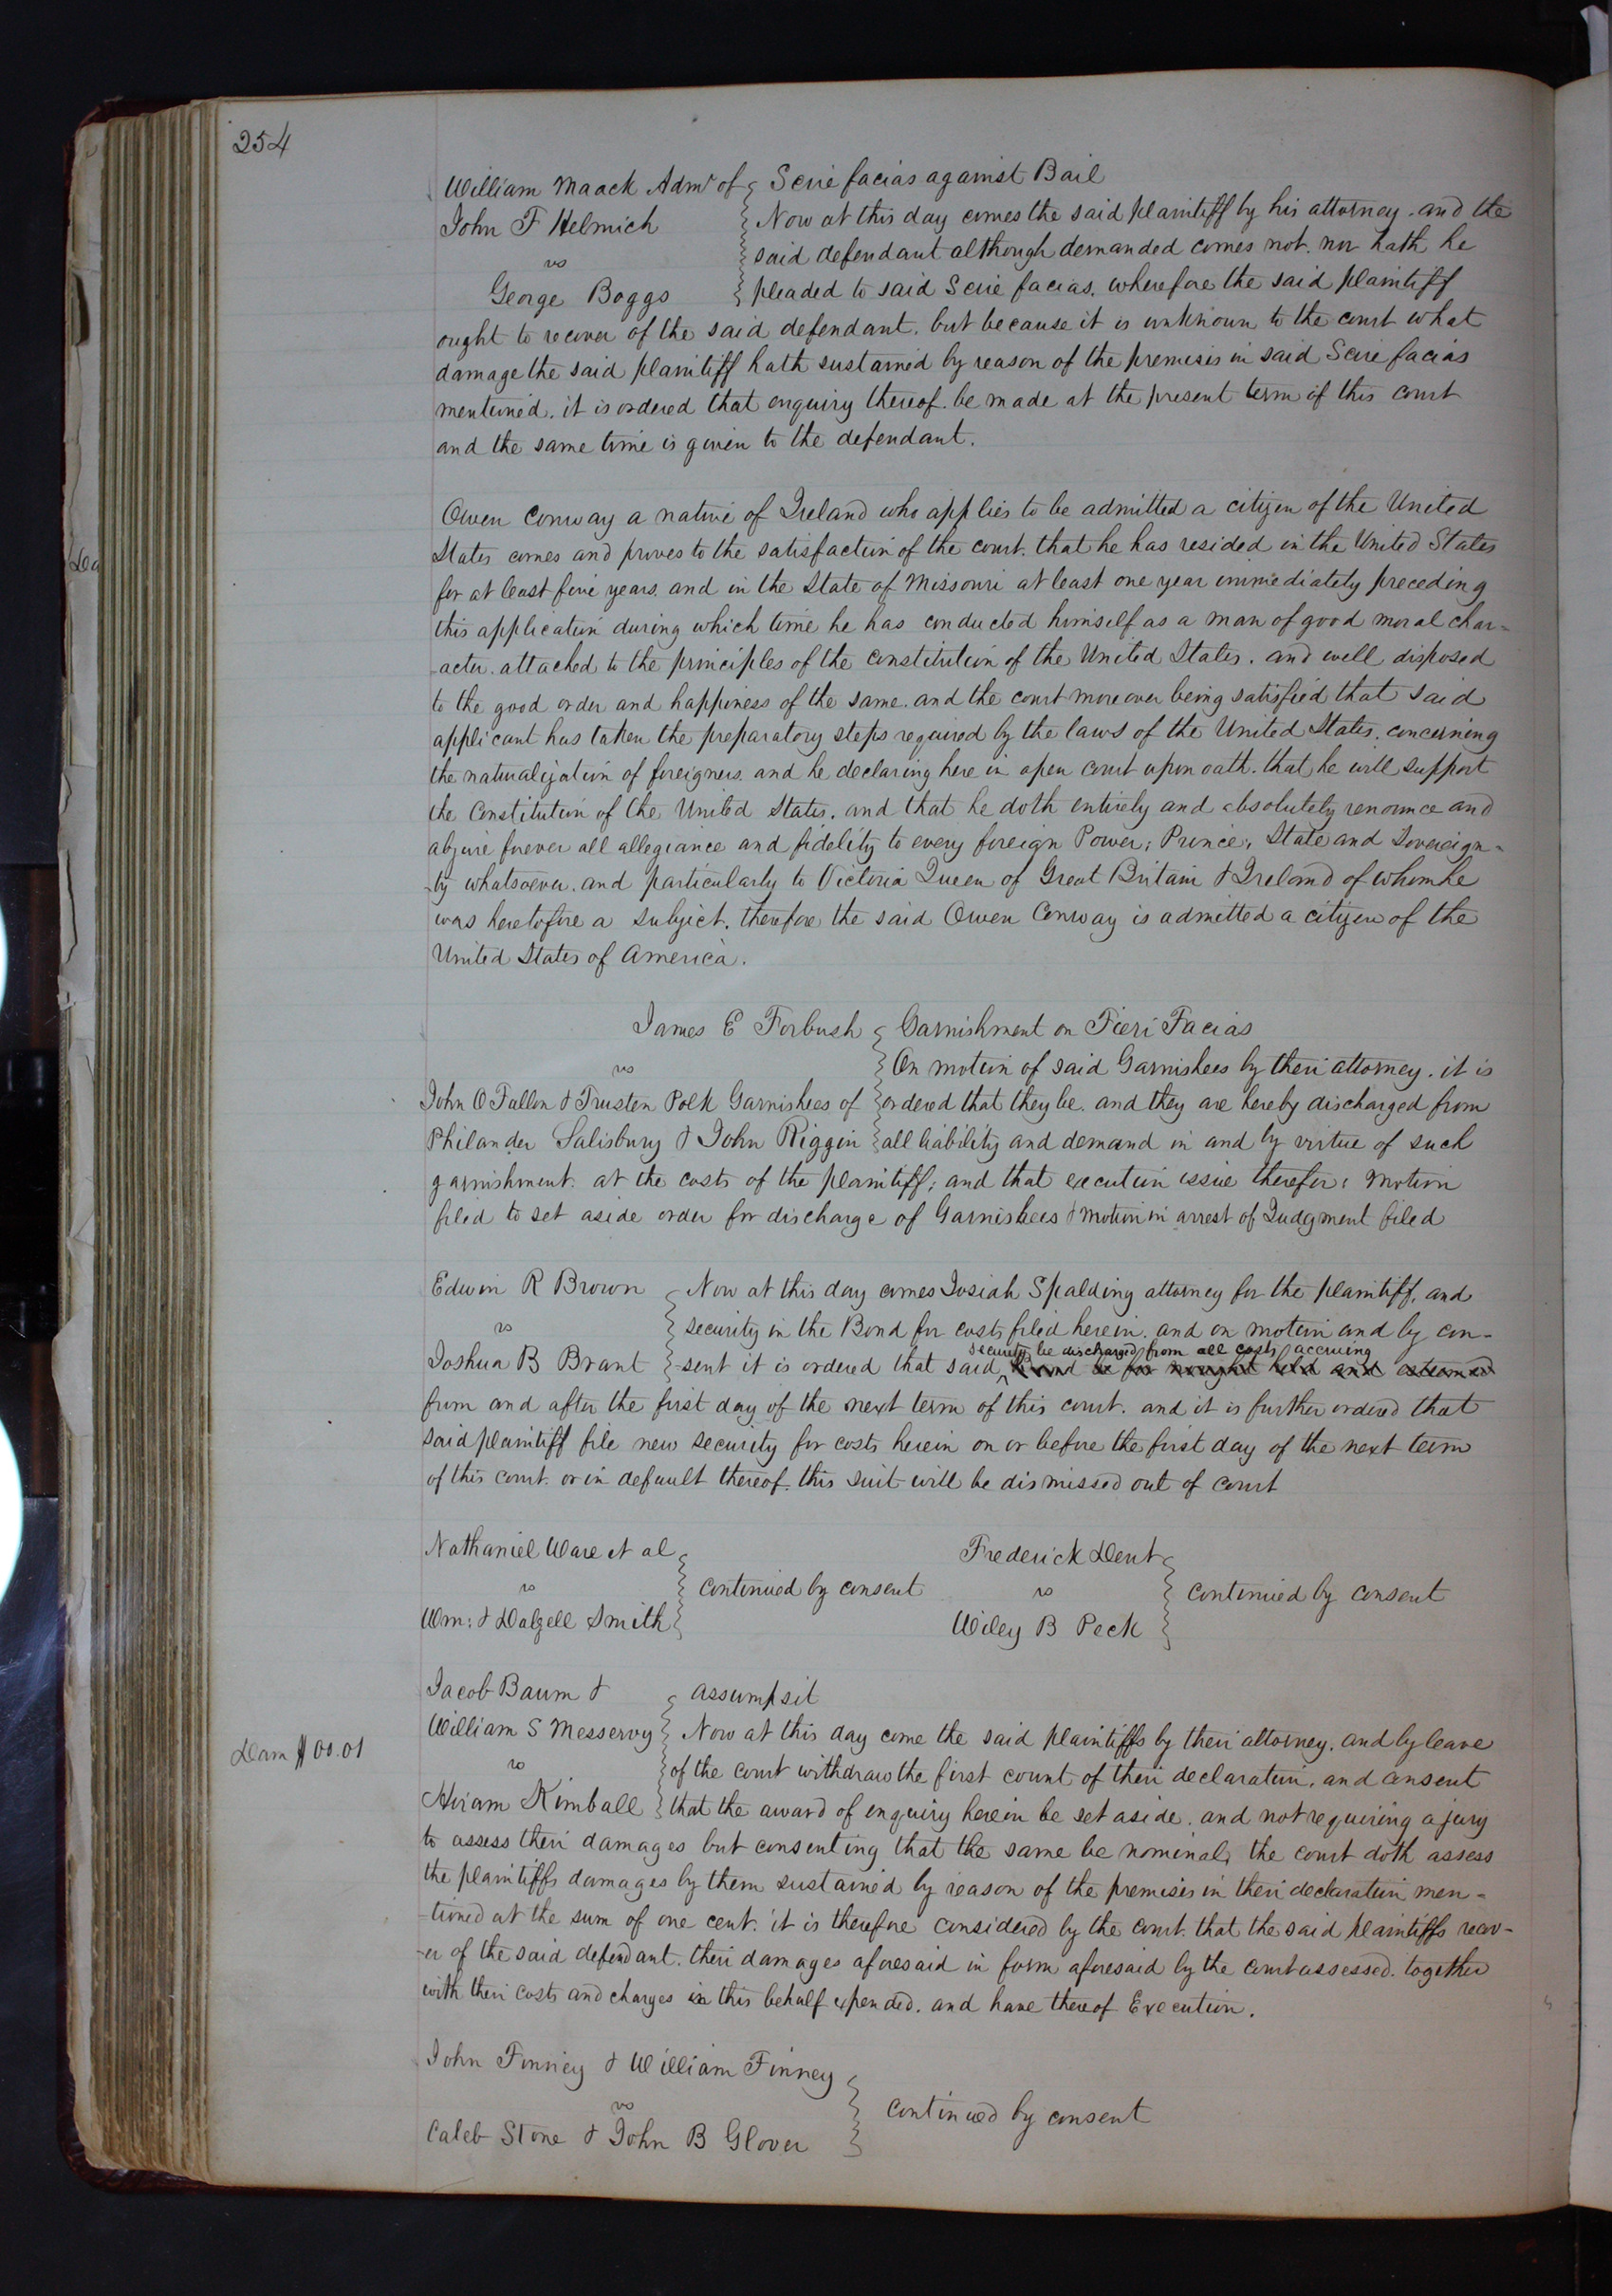 254
William Maack Admr of { Scire facias against Bail
John F Helmich { Now at this day comes the said plaintiff by his attorney. and the
vs { said defendant although demanded comes not. nor hath he
George Boggs { pleaded to said Scire facias. wherefore the said plaintiff
ought to recover of the said defendant. but because it is unknown to the court what
damage the said plaintiff hath sustained by reason of the premises in said Scire facias
mentioned. it is ordered that enquiry thereof. be made at the present term of this court
and the same time is given to the defendant.
Owen Conway a native of Ireland who applies to be admitted a citizen of the United
States comes and proves to the satisfaction of the court. that he has resided in the United States
for at least five years. and in the State of Missouri at least one year immediately preceding
this application during which time he has conducted himself as a man of good moral char=
-acter. attached to the principles of the constitution of the United States. and well disposed
to the good order and happiness of the same. and the court moreover being satisfied that said
applicant has taken the preparatory steps required by the laws of the United States. concerning
the naturalization of foreigners. and he declaring here in open court upon oath. that he will support
the Constitution of the United States. and that he doth entirely and absolutely renounce and
abjure forever all allegiance and fidelity to every foreign Power, Prince, State and Sovereign=
-ty whatsoever. and particularly to Victoria Queen of Great Britain & Ireland of whom he
was heretofore a subject. therefore the said Owen Conway is admitted a citizen of the
United States of America.
James E Forbush { Garnishment on Fieri Facias
vs { On motion of said Garnishees by their attorney. it is
John O Fallon & Trusten Polk Garnishees of { ordered that they be. and they are hereby discharged from
Philander Salisbury & John Riggin { all liability and demand in and by virtue of such
garnishment. at the costs of the plaintiff; and that execution issue therefor; Motion
filed to set aside order for discharge of Garnishees & motion in arrest of Judgment filed
Edwin R Brown { Now at this day comes Josiah Spalding attorney for the plaintiff. and
vs { security in the Bond for costs filed herein. and on motion and by con-
security be discharged from all costs accruing
Joshua B Brant { -sent it is ordered that said Bond be for naught held and esteemed
from and after the first day of the next term of this court. and it is further ordered that
said plaintiff file new security for costs herein on or before the first day of the next term
of this court. or in default thereof. this suit will be dismissed out of court
Nathaniel Ware et al
vs { continued by consent
Wm: & Dalzell Smith
Frederick Dent
vs { continued by consent
Wiley B Peck
Jacob Baum & { assumpsit
William S Messervy { Now at this day come the said plaintiffs by their attorney. and by leave
Dam $00.01
vs { of the court withdraw the first count of their declaration. and consent
Hiram Kimball { that the award of enquiry herein be set aside. and not requiring a jury
to assess their damages but consenting that the same be nominal, the court doth assess
the plaintiffs damages by them sustained by reason of the premises in their declaration men=
-tioned at the sum of one cent. it is therefore considered by the court. that the said plaintiffs recov-
-er of the said defendant. their damages aforesaid in form aforesaid by the court assessed. together
with their costs and charges in this behalf expended. and have thereof Execution.
John Finney & William Finney
vs { continued by consent
Caleb Stone & John B Glover